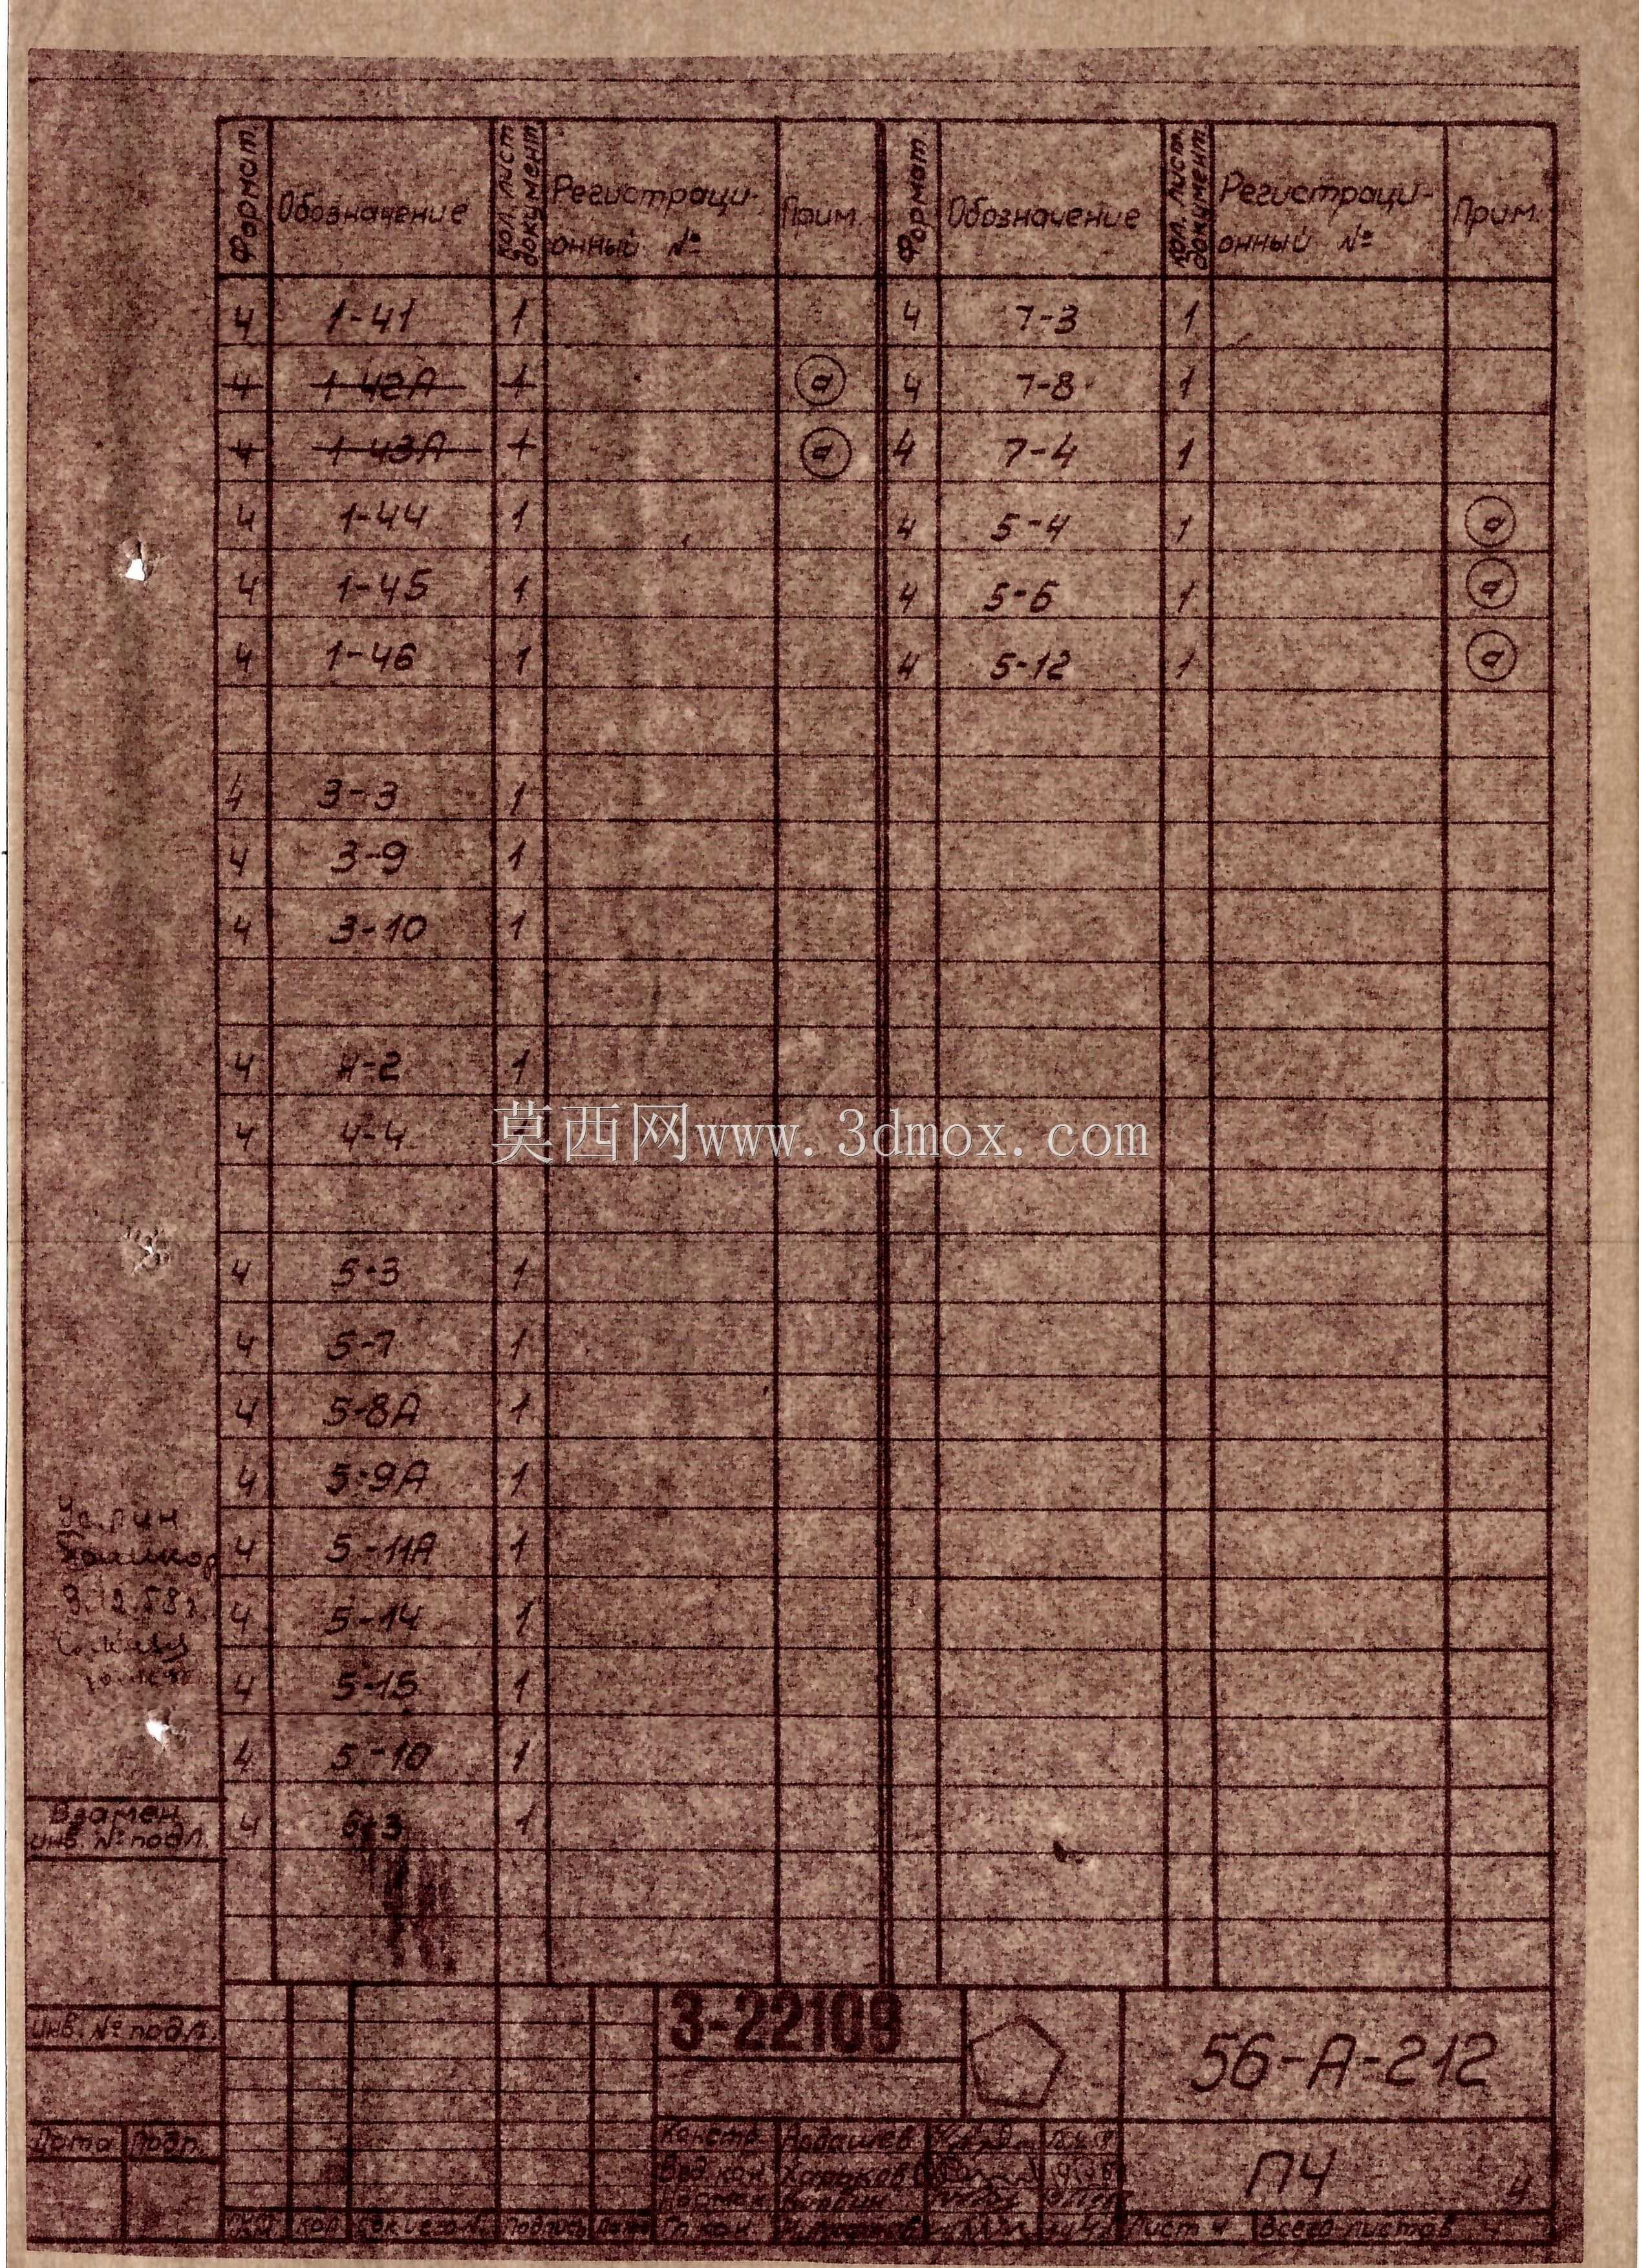 Формат. Обозначение Кол. лист. документ. Регистраци- онный № Прим.
Формат Обозначение Кол. лист. документ. Регистраци- онный № Прим.
4 1-41 1 4 7-3 1
4 1-42А 1 а 4 7-8 1
4 1-43А 1 а 4 7-4 1
4 1-44 1 4 5-4 1 а
4 1-45 1 4 5-6 1 а
4 1-46 1 4 5-12 1 а
4 3-3 1
4 3-9 1
4 3-10 1
4 4-2 1
4 4-4
莫西网www.3dmox.com
4 5-3 1
4 5-7 1
4 5-8А 1
4 5-9А 1
4 5-11А 1
4 5-14 1
4 5-15 1
4 5-10 1
4 6-3 1
Взамен
инв. № подл.
инв. № подл.
Дата Подп.
3-22109
56-А-212
Констр. Ардашев
Вед. кон.
Гл. кон.
П4
4
Подпись Дата
Лист 4 Всего листов